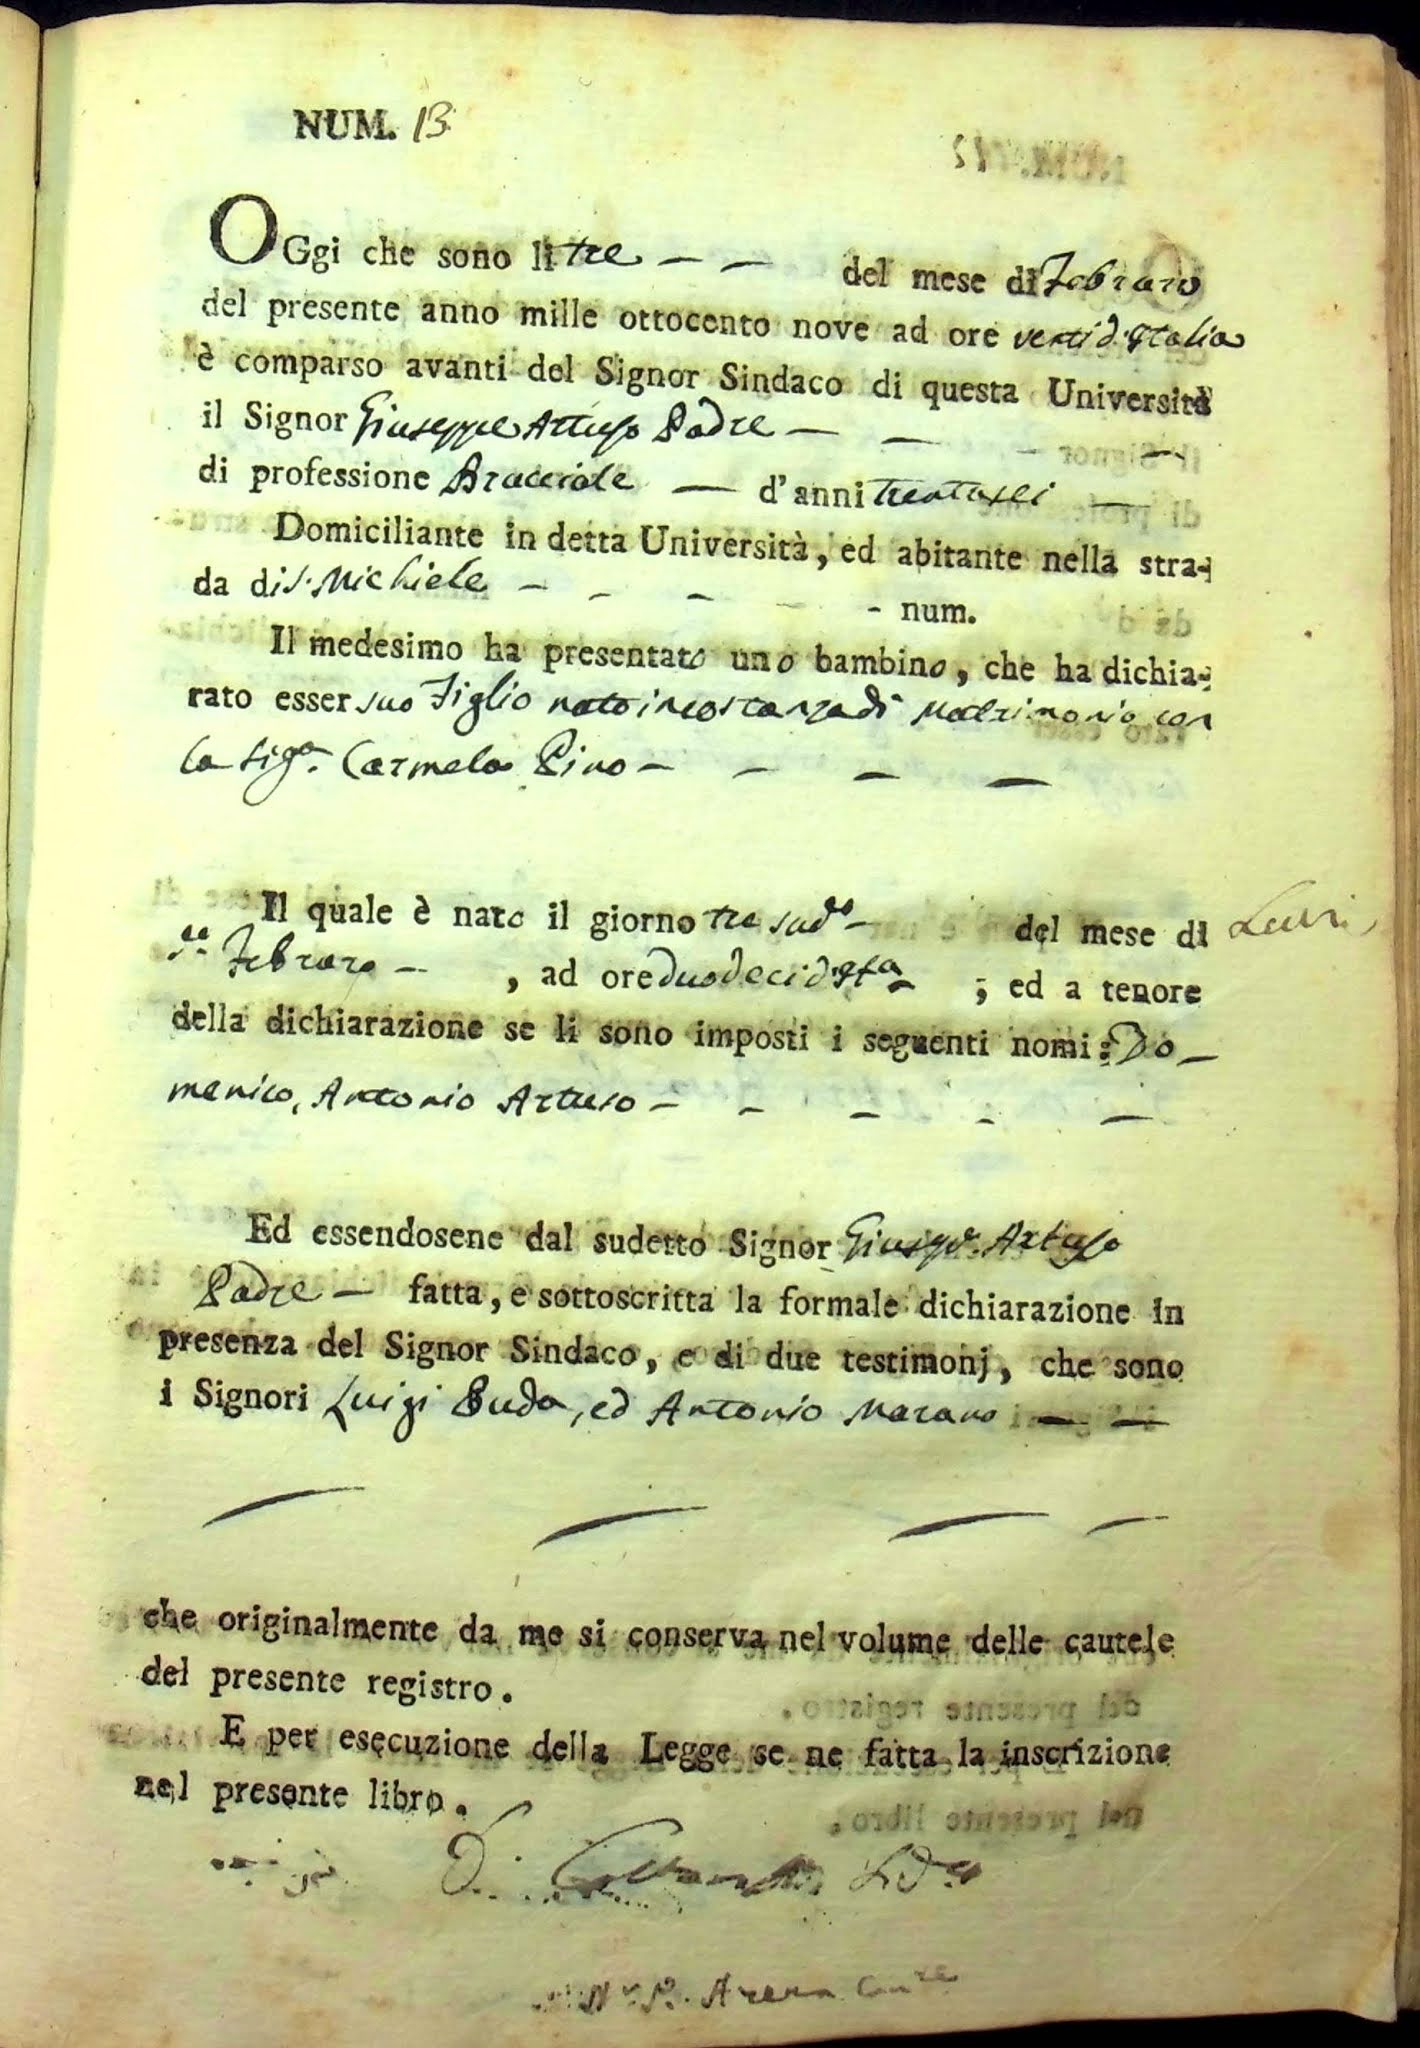 NUM. 13
OGgi che sono li tre — — del mese di Febraro
del presente anno mille ottocento nove ad ore venti d'Italia
è comparso avanti del Signor Sindaco di questa Università
il Signor Giuseppe Artuso Padre — — —
di professione Bracciale — d'anni trentasei —
Domiciliante in detta Università, ed abitante nella stra-
da di S. Michiele - - - - - num.
Il medesimo ha presentato uno bambino, che ha dichia-
rato esser suo Figlio nato in costanza di Matrimonio con
la Sig.a Carmela Pino — — — —
Il quale è nato il giorno tre sud.o — del mese di
s.e Febraro — , ad ore duodeci d'Ita ; ed a tenore
della dichiarazione se li sono imposti i seguenti nomi: Do-
menico, Antonio Artuso — - - - —
Ed essendosene dal sudetto Signor Giusepp.e Artuso
Padre — fatta, e sottoscritta la formale dichiarazione in
presenza del Signor Sindaco, e di due testimonj, che sono
i Signori Luigi Buda, ed Antonio Marano — —
che originalmente da me si conserva nel volume delle cautele
del presente registro.
E per esecuzione della Legge se ne fatta la inscrizione
nel presente libro.
Arena Can.re